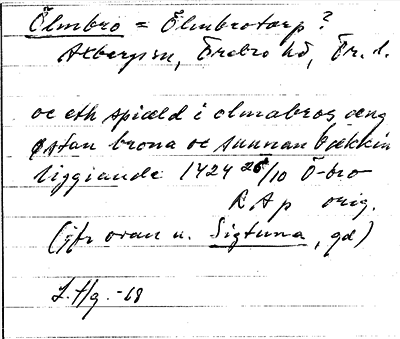 Ölmbro = Ölmbrotorp?
Axbergs sn, Örebro hd, Ör. l.
oc eth spiæld i olmabros æng
østan brona oc sunnan bækkin
liggiande 1424 25/10 Ö-bro
RAp orig.
(jfr ovan u. Sigtuna, gd)
L. Hg. -68